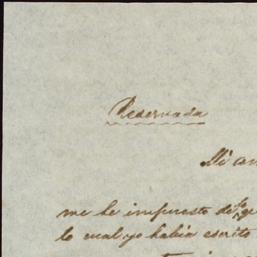 Reservada
Mi am
me he impuesto de
lo cual yo había escrito